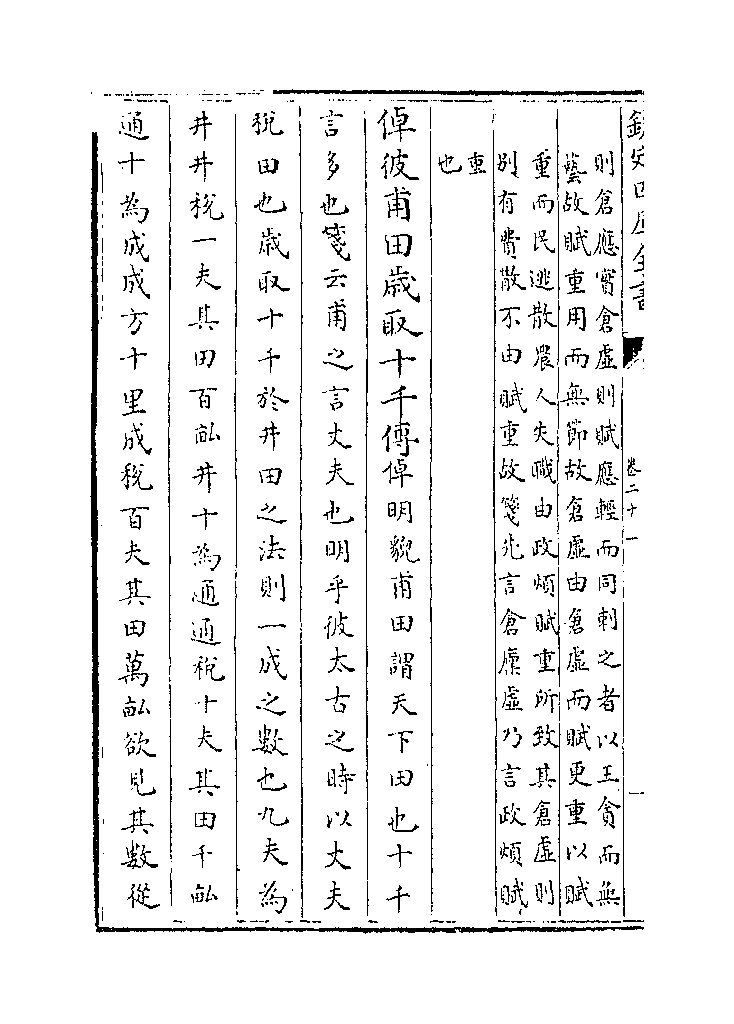 欽定四庫全書
卷二十一
則倉應實倉虛則賦應輕而同刺之者以王貪而無
藝故賦重用而無節故倉虛由倉虛而賦更重以賦
重而民逃散農人失職由政煩賦重所致其倉虛則
別有費散不由賦重故箋兆言倉廩虛乃言政煩賦
重
也
倬彼甫田歲取十千傳倬明貌甫田謂天下田也十千
言多也箋云甫之言丈夫也明乎彼太古之時以丈夫
稅田也歲取十千於井田之法則一成之數也九夫為
井井稅一夫其田百畝井十為通通稅十夫其田千畝
通十為成成方十里成稅百夫其田萬畝欲見其數從